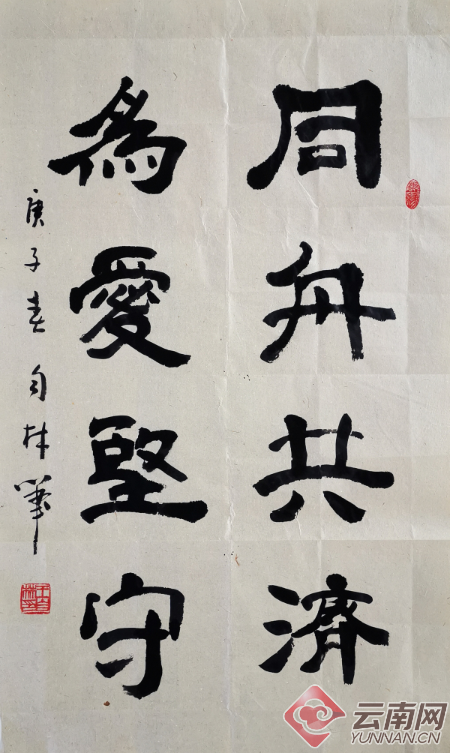 同舟共濟
為愛堅守
庚子春自林筆
云南网
YUNNAN.CN